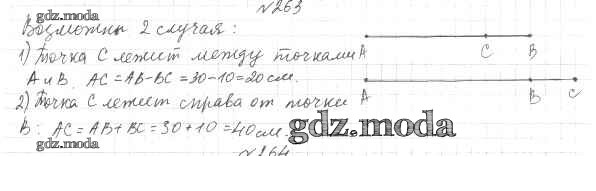 №263
gdz.moda
Возможны 2 случая:
1) Точка C лежит между точками
A и B. AC = AB - BC = 30 - 10 = 20 см.
2) Точка C лежит справа от точки
B: AC = AB + BC = 30 + 10 = 40 см.
A C B
A B C
gdz.moda
gdz.moda
№264